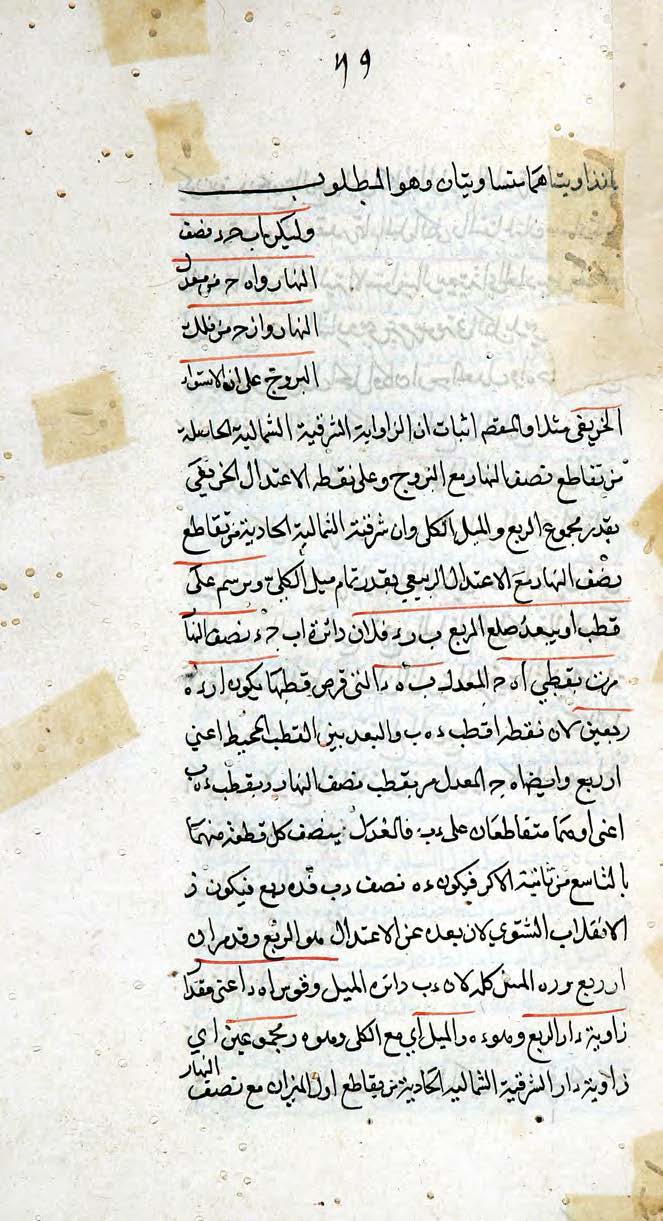 ٥٩
فزاويتاهما متساويتان وهو المطلوب
وليكن اب حـ ء نصف
النهار واه حـ من معدل
النهار وار حـ من فلك
البروج على ان الاستواء
الخريفي مثلا والمقصد اثبات ان الزاوية الشرقية الشمالية الحاصلة
من تقاطع نصف النهار مع البروج وعلى نقطة الاعتدال الخريفي
بقدر مجموع الربع والميل الكلي وان شرقية الشمالية الحادثة من تقاطع
نصف النهار مع الاعتدال الربيعي بقدر تمام ميل الكلي ونرسم على
قطب ا وببعد ضلع المربع ب ر ء فلان دائرة اب حـ ء نصف النها
مرت بقطبي اه حـ المعدل ب ه ء التي فرض قطبها يكون ار ء ه
ربعين لان نقطة ا قطب ء ه ب والبعد بين القطب المحيط اعني
ار ربع وايضا اه حـ المعدل مر بقطب نصف النهار وبقطب ء ه ب
اعني ا وهما متقاطعان على ء ب فالمعدل ينصف كل قطعة منهما
بالتاسع من ثانية الاكر فيكون ء ه نصف ء ب فـ ه ربع فيكون ز
الانقلاب الشتوي لان بعده عن الاعتدال هو الربع وقد مر ان
ار ربع و ر ه الميل كله لان ء ب دائرة الميل وقوس اه ء اعني مقدار
زاوية ء ار الربع و ه ر الميل اي مع الكلي و مجموعين اي
زاوية ء ار الشرقية الشمالية الحادثة من تقاطع اول الميزان مع نصف النهار